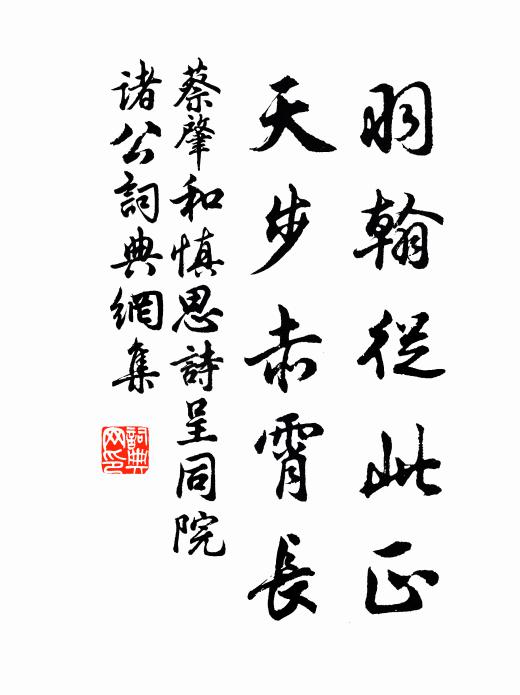 羽翰從此正
天步赤霄長
蔡肇和慎思詩呈同院
諸公詞典網集
詞典
网印